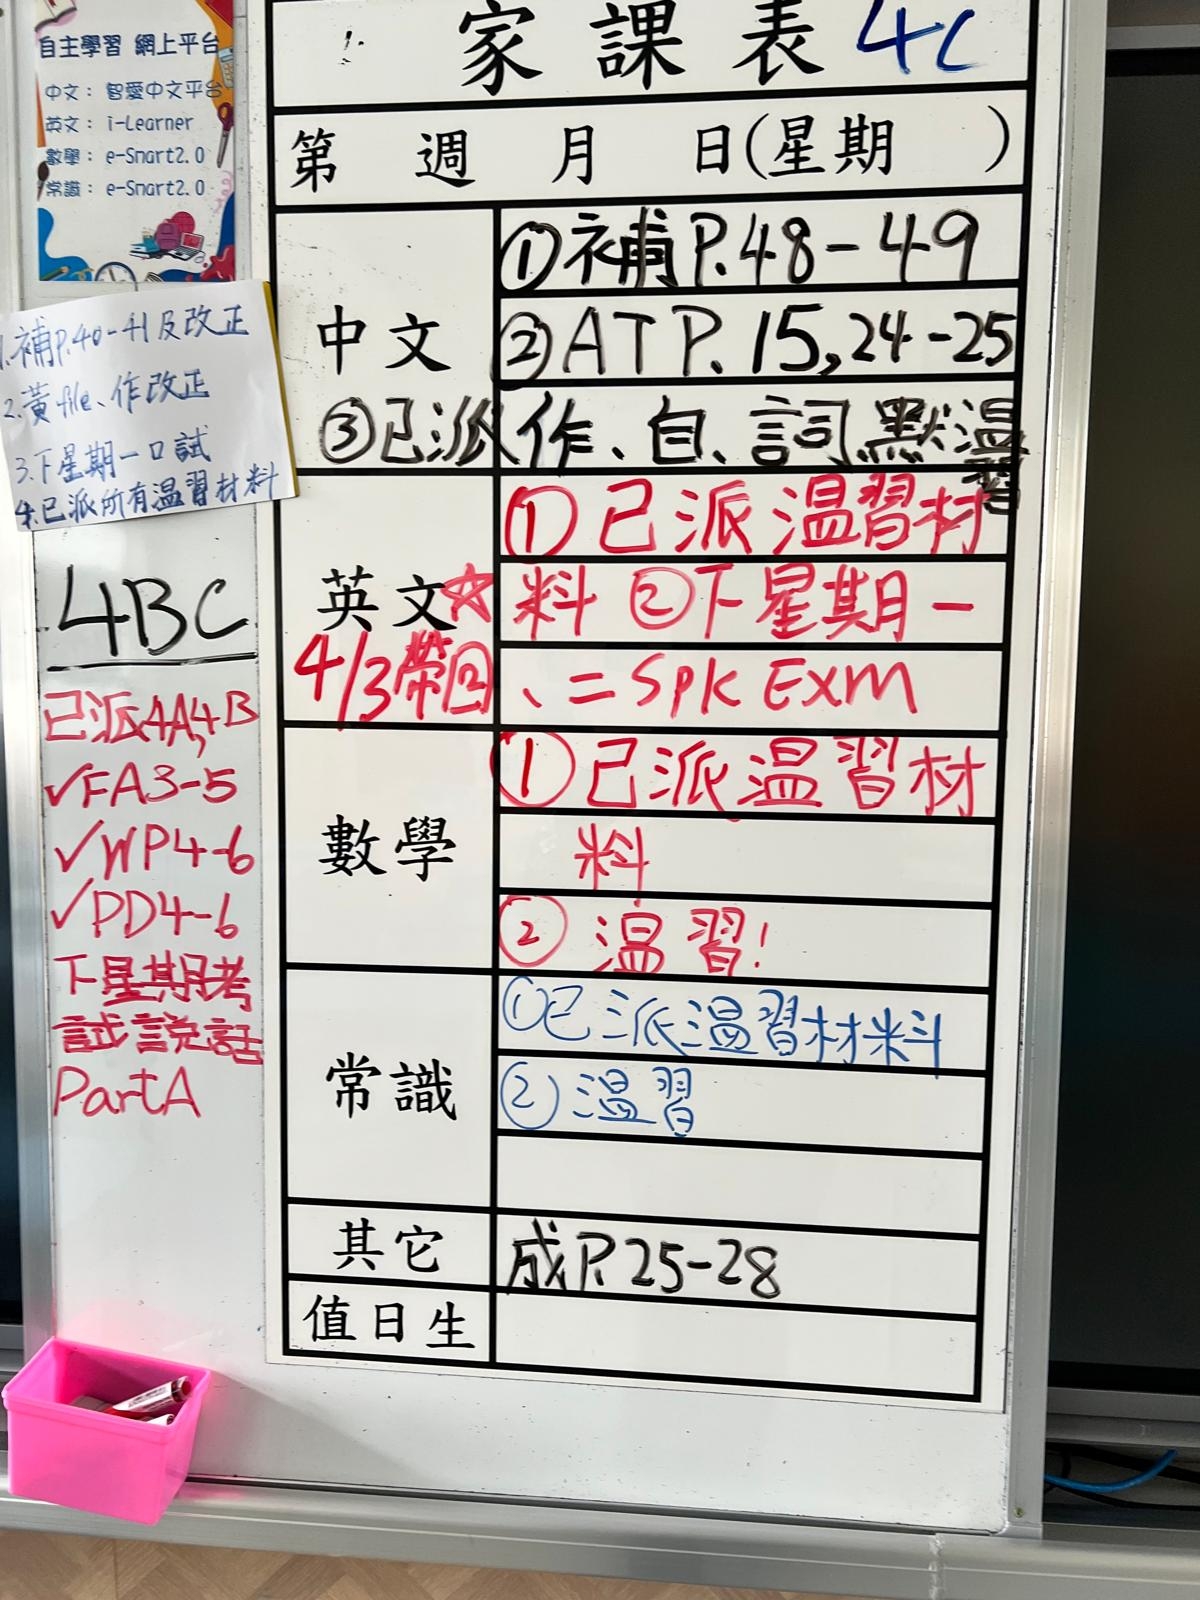 自主學習 網上平台
中文： 智愛中文平台
英文： i-Learner
數學： e-Smart2.0
常識： e-Smart2.0
1.補P.40-41及改正
2.黃file、作改正
3.下星期一口試
4.已派所有温習材料
4BC
已派4A,4B
✓FA3-5
✓WP4-6
✓PD4-6
下星期考
試說話
PartA
家課表 4C
第 週 月 日(星期 )
中文
①補P.48-49
②ATP.15,24-25
③已派作、自、詞、默温習
英文☆
4/3帶回
①已派温習材
料 ②下星期一
、二 Spk Exm
數學
①已派温習材
料
②温習!
常識
①已派温習材料
②温習
其它
成P.25-28
值日生